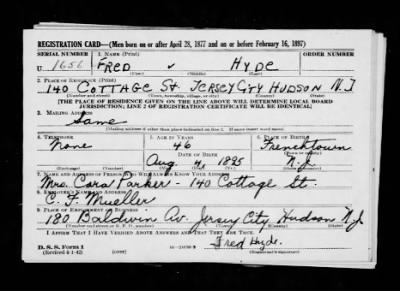 REGISTRATION CARD—(Men born on or after April 28, 1877 and on or before February 16, 1897)
SERIAL NUMBER 1. NAME (Print)
U 1656 FRED HYDE
2. PLACE OF RESIDENCE (Print)
140 COTTAGE St JERSEY CITY HUDSON N.J
(Number and street) (Town, township, village, or city) (County) (State)
[THE PLACE OF RESIDENCE GIVEN ON THE LINE ABOVE WILL DETERMINE LOCAL BOARD
JURISDICTION; LINE 2 OF REGISTRATION CERTIFICATE WILL BE IDENTICAL]
3. MAILING ADDRESS
Same
[Mailing address if other than place indicated on line 2. If same insert word same]
4. TELEPHONE 5. AGE IN YEARS 6. PLACE OF BIRTH
None 46 Frenchtown
DATE OF BIRTH
Aug 4 1895 N.J.
7. NAME AND ADDRESS OF PERSON WHO WILL ALWAYS KNOW YOUR ADDRESS
Mrs. Cora Parker - 140 Cottage St.
8. EMPLOYER'S NAME AND ADDRESS
C. F. Mueller
9. PLACE OF EMPLOYMENT OR BUSINESS
180 Baldwin Av. Jersey City Hudson N.J.
(Number and street or R. F. D. number) (Town) (County) (State)
I AFFIRM THAT I HAVE VERIFIED ABOVE ANSWERS AND THAT THEY ARE TRUE.
D. S. S. Form 1
(Revised 4-1-42) (over) Fred Hyde.
(Registrant's signature)